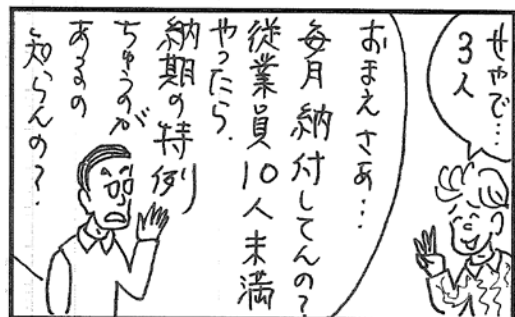 せやで…
3人
おまえさぁ…
毎月納付してんの?
従業員10人未満
やったら、
納期の特例
ちゅうのが
あるの
知らんの?